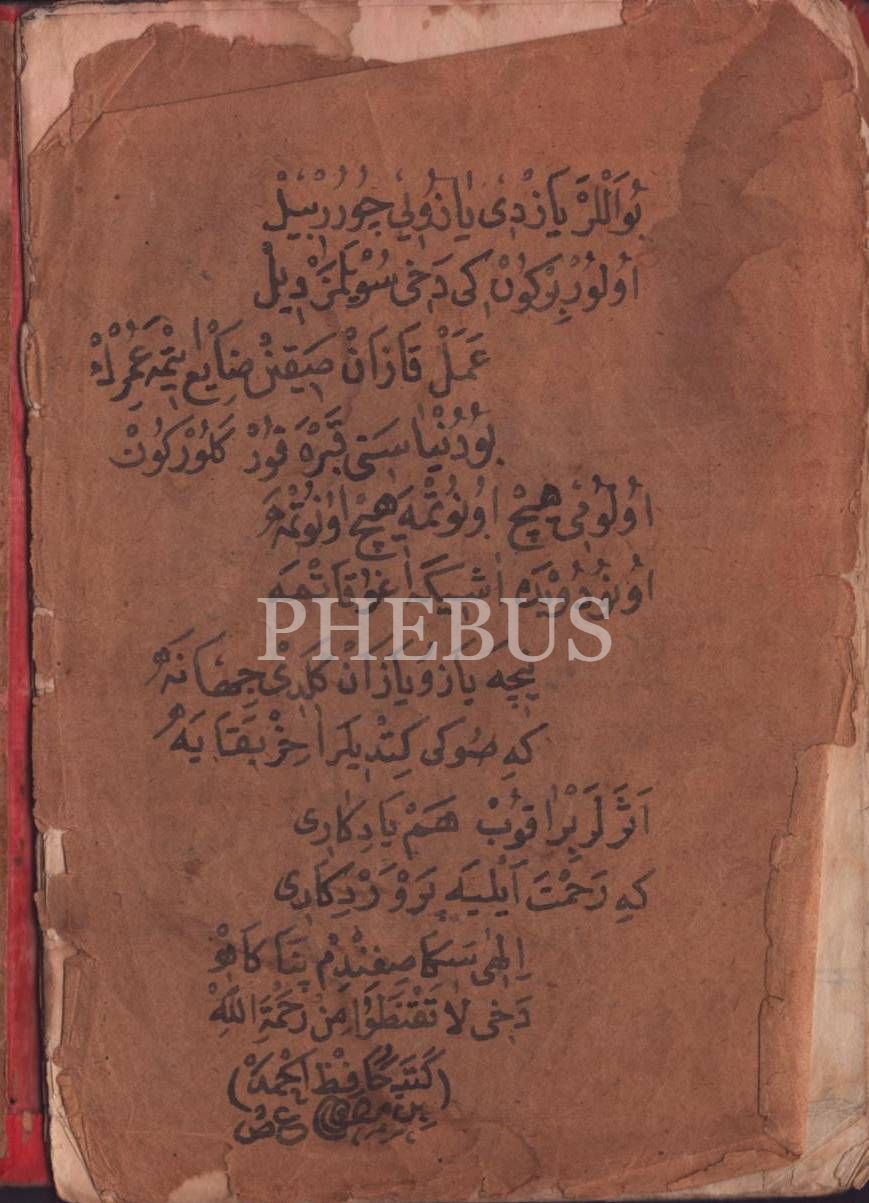 بُو اَلْلَرْ یَازْدِی یَازُویِی چُورُرْ بِیلْ
اُولُورْ بِرْ کُونْ کِی دَخِی سُویْلَمَزْ دِیلْ
عَمَلْ قَازَانْ صَقِنْ ضَایِعْ اِیتْمَه عُمْرِڭْ
بُو دُنْیَا سَنِی قَبْرَه قُورْ کَلُورْ کُونْ
اُولُومِی هِیچْ اُونُوتْمَه هِیچْ اُونُوتْمَه
اُونُودُوبْدَه اَشِیکَه اَغُو قَاتْمَه
نِیچَه یَازُو یَازَانْ کَلْدِی جِهَانَه
کِه صُوکِی کِتْدِیلَرْ اٰخِرْ بَقَایَه
اَثَرْلَرْ بِرَاقُوبْ هَمْ یَادِکَارِی
کِه رَحْمَتْ اَیْلَیَه پَرْوَرْدِکَارِی
اِلٰهِی سَکَا صِغِنْدِمْ پَنَاکَاهْ
دَخِی لَا تَقْنَطُوا مِنْ رَحْمَةِ اللّٰهْ
(کَتَبَ حَافِظْ اَحْمَدْ
بِنْ مصطفى)
PHEBUS